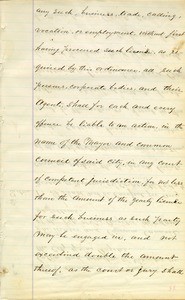 any such business, trade, calling,
vocation or employment, without first
having procured such license, as re-
quired by this ordinance all such
persons corporate bodies and their
Agents, shall for each and every
offence be liable to an action in the
name of the Mayor and common
Council of said City, in any court
of competent Jurisdiction for not less
than the amount of the yearly license
for such business as such party
may be engaged in, and not
exceeding double the amount
thereof, as the court or jury shall